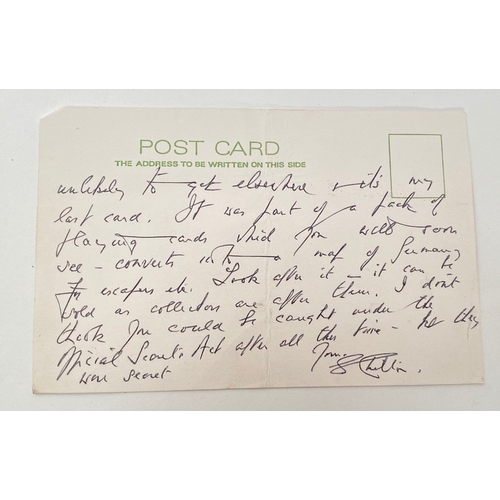 POST CARD
THE ADDRESS TO BE WRITTEN ON THIS SIDE
unlikely to get elsewhere & it's my
last card. It was part of a pack of
playing cards which you will soon
see - converts into a map of Germany
for escapers etc. Look after it - it can be
sold as collectors are after them. I don't
think you could be caught under the
Official Secrets Act after all this time - but they
were secret
Yours